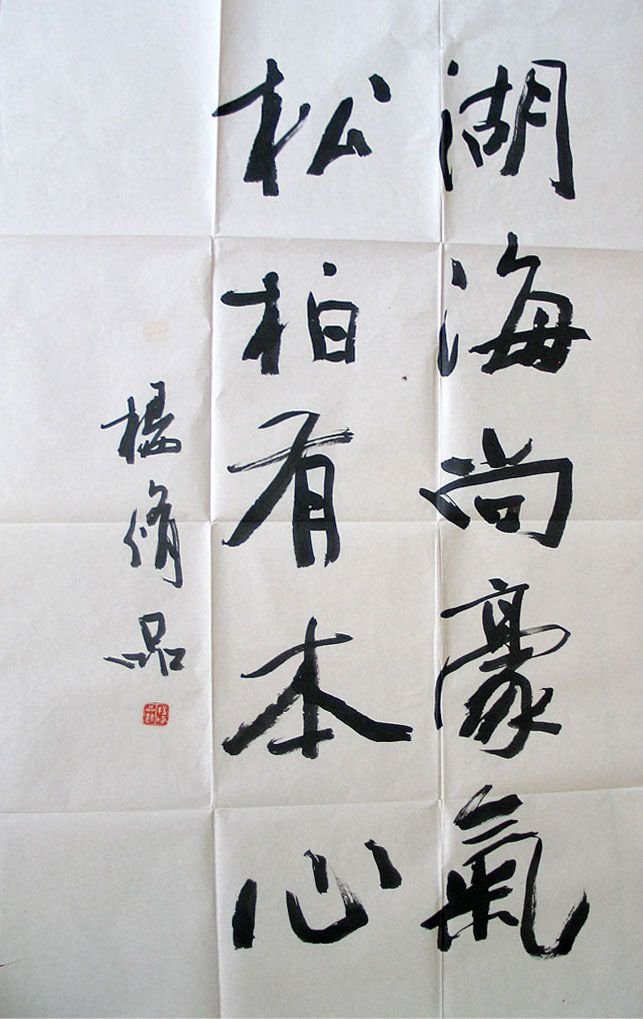 湖海尚豪氣
松柏有本心
楊脩品